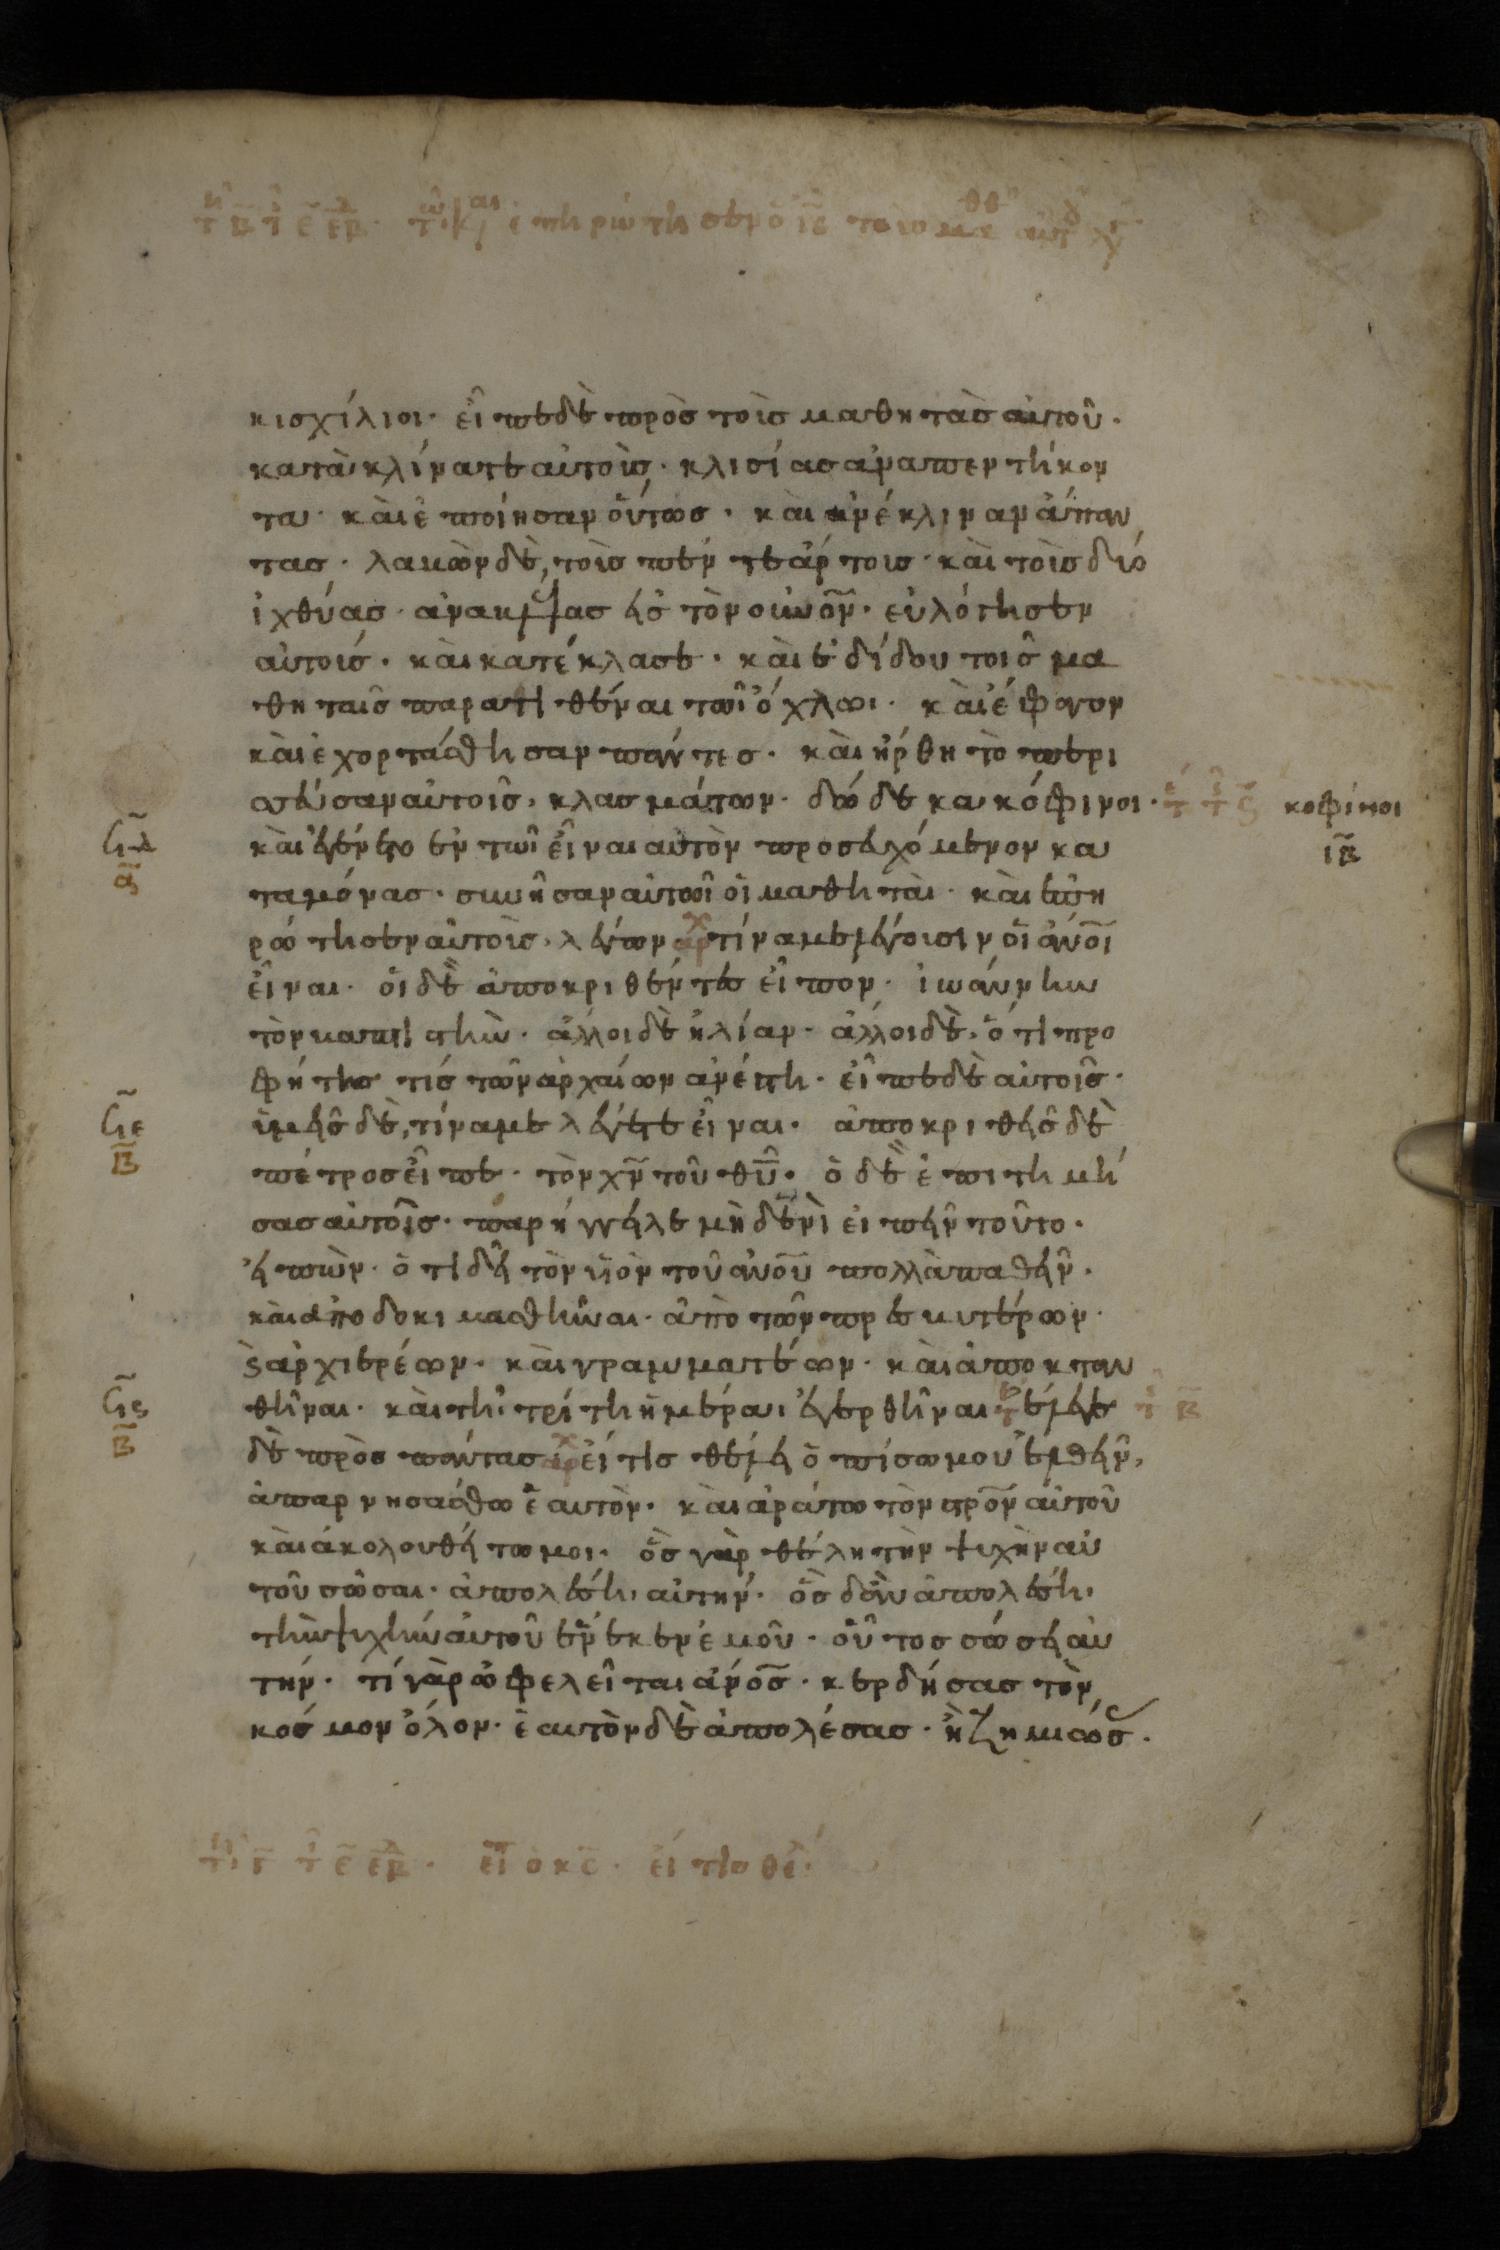 κισχίλιοι· εἶπε δὲ πρὸς τοὺς μαθητὰς αὐτοῦ·
κατακλίνατε αὐτοὺς· κλισίας ἀνα πεντήκον
τα· καὶ ἐποίησαν οὕτως· καὶ ἀνέκλιναν ἅπαν
τας· λαβὼν δὲ, τοὺς πέντε ἄρτους· καὶ τοὺς δύο
ἰχθύας· ἀναβλέψας εἰς τὸν οὐνο̅ν· εὐλόγησεν
αὐτούς· καὶ κατέκλασε· καὶ ἐδίδου τοῖς μα
θηταῖς παρατιθέναι τῶι ὄχλωι· καὶ ἔφαγον
καὶ ἐχορτάσθησαν πάντες· καὶ ἤρθη τὸ περι
σεῦσαν αὐτοῖς, κλασμάτων· δώδεκα κόφινοι· κοφίνοι
ιβ̅
καὶ ἐγένετο ἐν τῶι εἶναι αὐτὸν προσευχόμενον κα
ταμόνας· συνῆσαν αὐτῶι οἱ μαθηταὶ· καὶ ἐπη
ρώτησεν αὐτοὺς, λέγων τίνα με λέγουσιν οἱ ἄνοι̅
εἶναι· οἱ δὲ ἀποκριθέντες εἶπον· ἰωάννην
τὸν βαπτιστὴν· ἄλλοι δὲ ἠλίαν· ἄλλοι δὲ, ὅτι προ
φήτης τίς τῶν ἀρχαίων ἀνέστη· εἶπε δὲ αὐτοῖς·
ὑμεῖς δὲ, τίνα με λέγετε εἶναι· ἀποκριθεὶς δὲ
πέτρος εἶπε· τὸν χν̅ τοῦ θυ̅· ὁ δὲ ἐπιτιμή
σας αὐτοῖς· παρήγγειλε μηδενὶ εἰπεῖν τοῦτο·
εἰπὼν· ὅτι δεῖ τὸν υἱὸν τοῦ ἀνου̅ πολλὰ παθεῖν·
καὶ ἀποδοκιμασθῆναι· ἀπὸ τῶν πρεσβυτέρων·
ϛ ἀρχιερέων· καὶ γραμματέων· καὶ ἀποκταν
θῆναι· καὶ τῆι τρίτη ἡμέραι ἐγερθῆναι ἔλεγε
δὲ πρὸς πάντας εἴ τις θέλει ὀπίσω μου ἐλθεῖν,
ἀπαρνησάσθω ἑαυτὸν· καὶ ἀράτω τὸν στρο̅ν αὐτοῦ
καὶ ἀκολουθείτω μοι· ὃς γὰρ θέλη τὴν ψυχὴν αὐ
τοῦ σῶσαι· ἀπολέσει αὐτήν· ὃς δ᾽ ἂν ἀπολέσηι
τὴν ψυχὴν αὐτοῦ ἕνεκεν ἐμοῦ· οὗτος σώσει αὐ
τήν· τί γὰρ ὠφελεῖται ἄνος̅· κερδήσας τὸν
κόσμον ὅλον· ἑαυτὸν δὲ ἀπολέσας· ἢ ζημιωθεὶς·